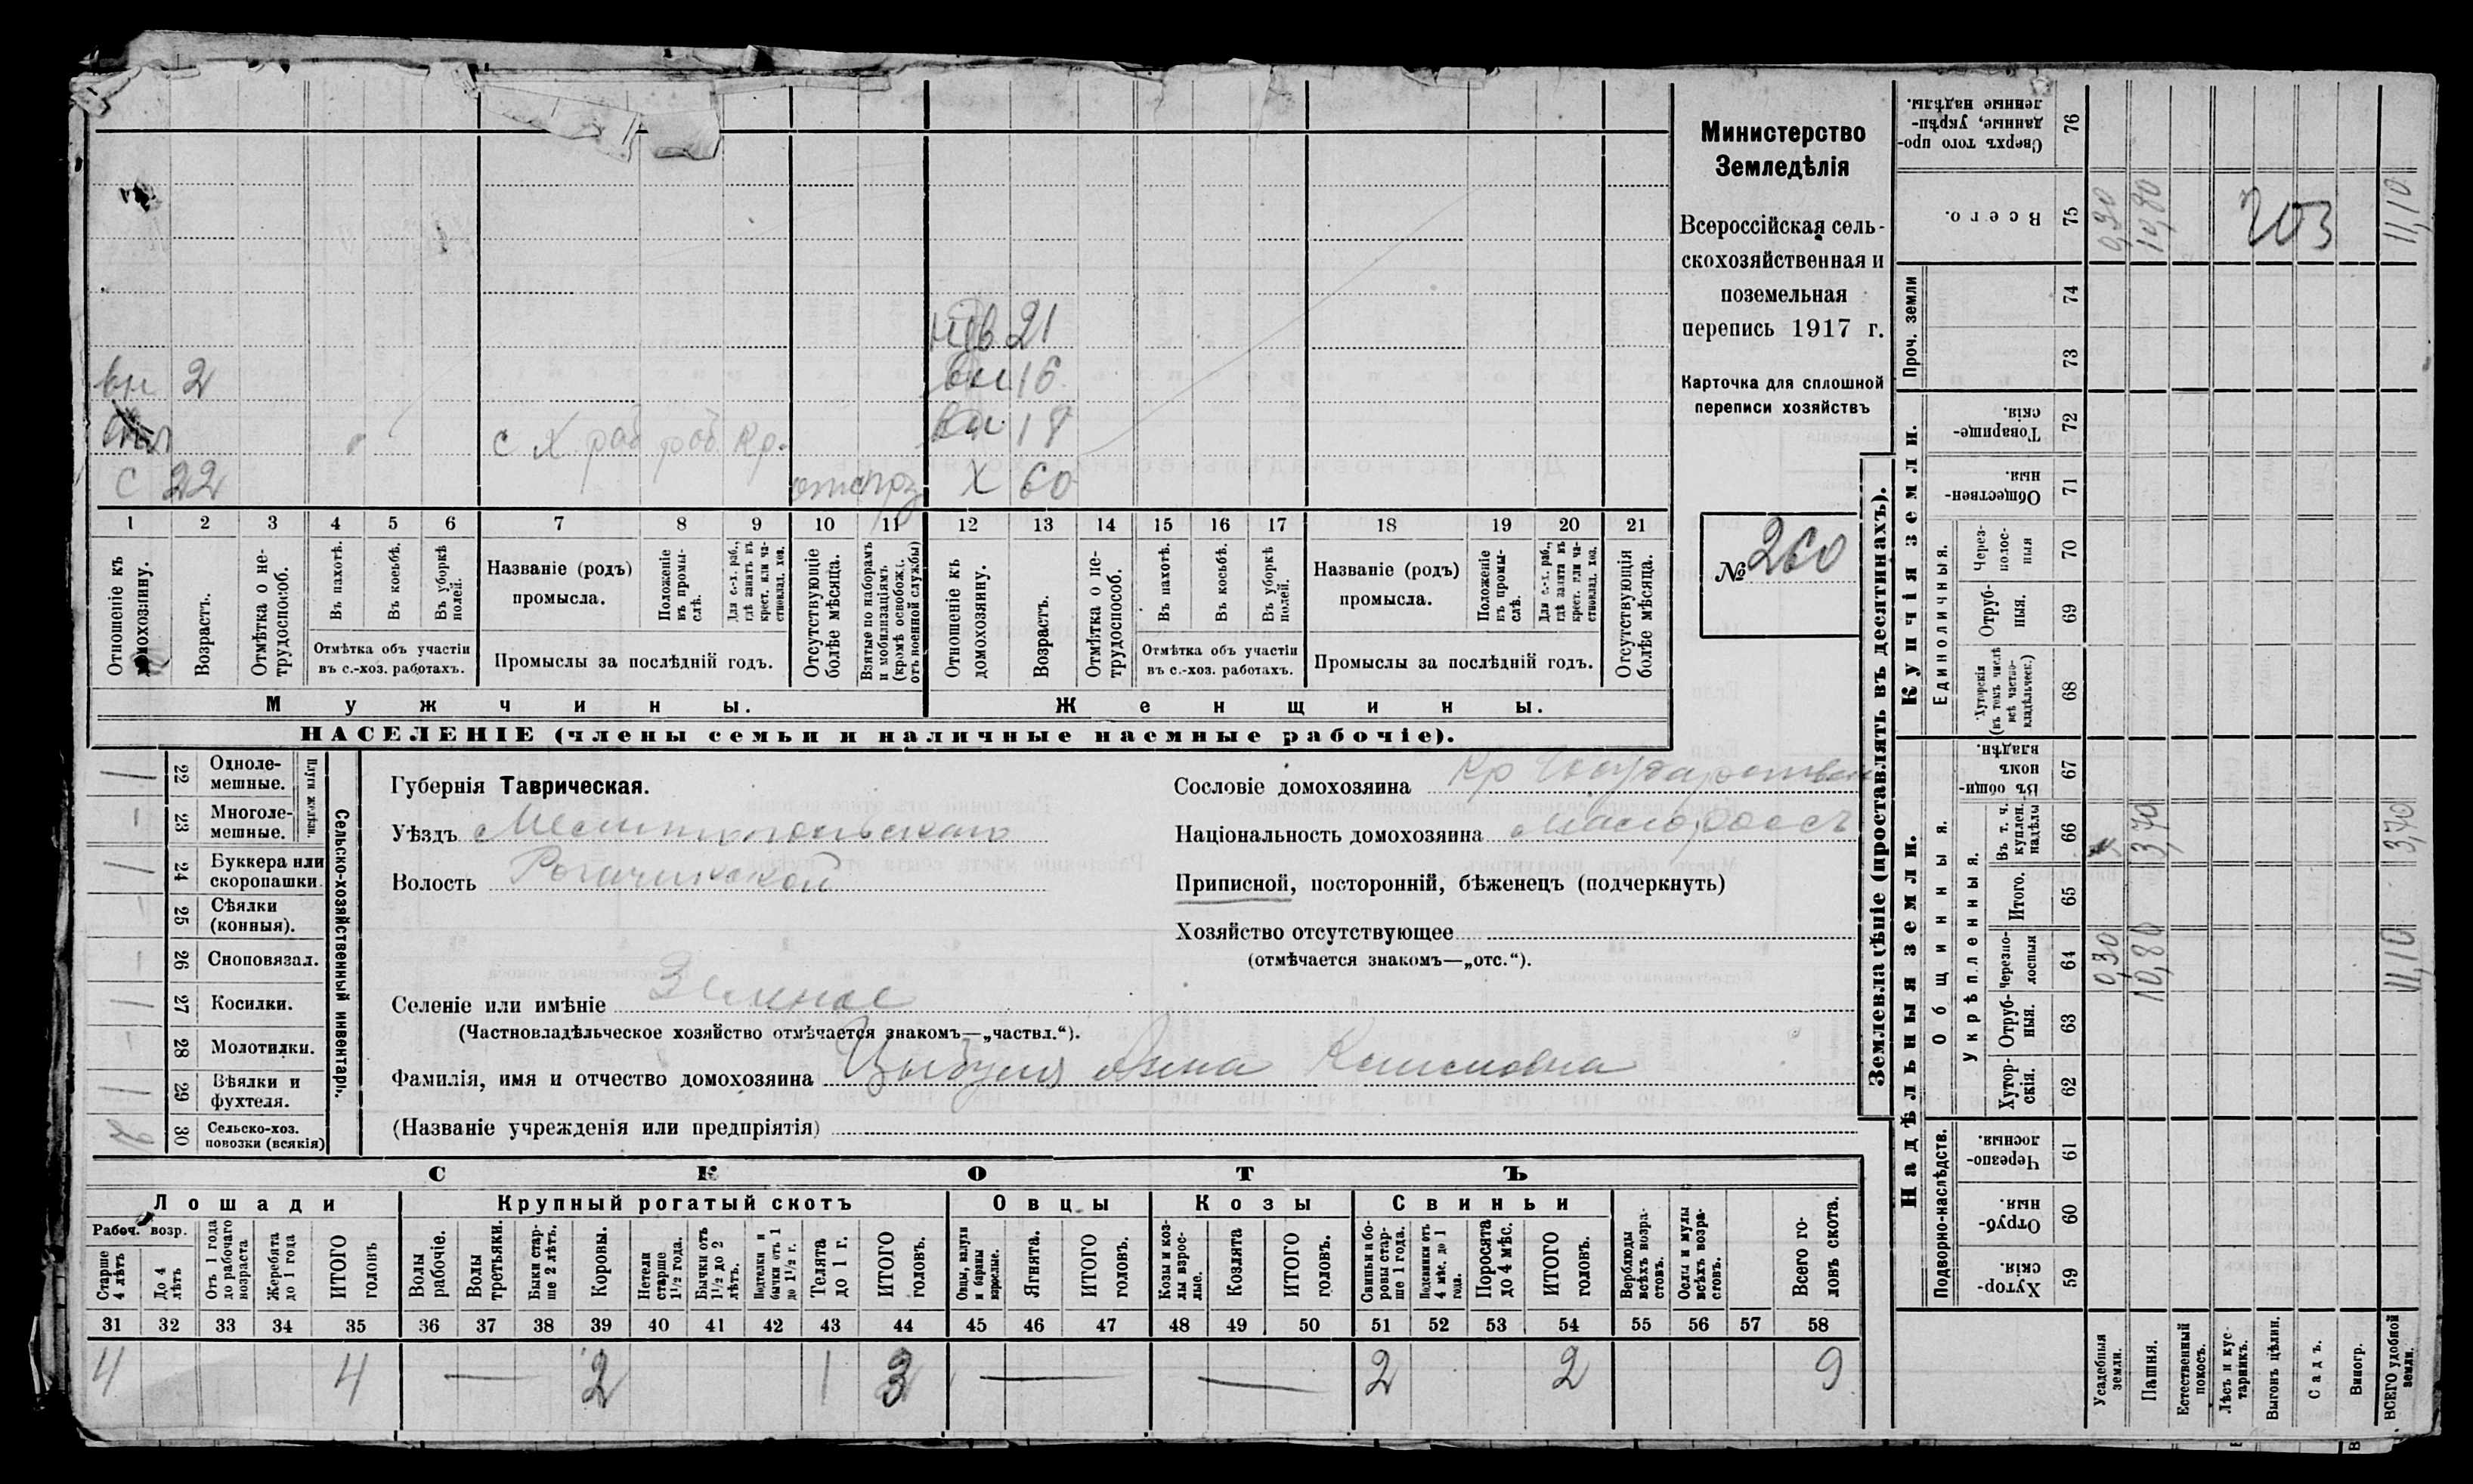 Министерство
Земледѣлія
Всероссійская сель-
скохозяйственная и
поземельная
перепись 1917 г.
Карточка для сплошной
переписи хозяйствъ
№ 260
21
вн 2 16
18
с х. раб раб Кр.
С 22 Х 60
1 2 3 4 5 6 7 8 9 10 11 12 13 14 15 16 17 18 19 20 21
Отношеніе къ домохозяину.
Возрастъ.
Отмѣтка о не-трудоспособ.
Въ пахотѣ.
Въ косьбѣ.
Въ уборкѣ полей.
Отмѣтка объ участіи
въ с.-хоз. работахъ.
Названіе (родъ)
промысла.
Положеніе въ промы-слѣ.
Для с.-х. раб., гдѣ занятъ въ крест. или ча-стновлад. хоз.
Промыслы за послѣдній годъ.
Отсутствующіе болѣе мѣсяца.
Взятые по наборамъ и мобилизаціямъ (кромѣ освобожд. отъ военной службы)
Отношеніе къ домохозяину.
Возрастъ.
Отмѣтка о не-трудоспособ.
Въ пахотѣ.
Въ косьбѣ.
Въ уборкѣ полей.
Отмѣтка объ участіи
въ с.-хоз. работахъ.
Названіе (родъ)
промысла.
Положеніе въ промы-слѣ.
Для с.-х. раб., гдѣ занята въ крест. или ча-стновлад. хоз.
Промыслы за послѣдній годъ.
Отсутствующія болѣе мѣсяца.
Мужчины. Женщины.
НАСЕЛЕНІЕ (члены семьи и наличные наемные рабочіе).
Сельско-хозяйственный инвентарь.
Плуги желѣзн.
22 Одноле-мешные.
23 Многоле-мешные.
24 Буккера или скоропашки.
25 Сѣялки (конныя).
26 Сноповязал.
27 Косилки.
28 Молотилки.
29 Вѣялки и фухтеля.
30 Сельско-хоз. повозки (всякія)
Губернія Таврическая.
Уѣздъ Мелитопольскаго
Волость Рогачикской
Сословіе домохозяина Кр Государствен
Національность домохозяина Малороссъ
Приписной, посторонній, бѣженецъ (подчеркнуть)
Хозяйство отсутствующее
(отмѣчается знакомъ—„отс.“).
Селеніе или имѣніе Зеленое
(Частновладѣльческое хозяйство отмѣчается знакомъ—„частвл.“).
Фамилія, имя и отчество домохозяина Цыбуля Анна
(Названіе учрежденія или предпріятія)
СКОТЪ
Лошади Крупный рогатый скотъ Овцы Козы Свиньи
Рабоч. возр.
Старше 4 лѣтъ
До 4 лѣтъ
Отъ 1 года до рабочаго возраста
Жеребята до 1 года
ИТОГО головъ
Волы рабочіе.
Волы третьяки.
Быки стар-ше 2 лѣтъ.
Коровы.
Нетели старше 1½ года.
Бычки отъ 1½ до 2 лѣтъ.
Подтелки и бычки отъ 1 до 1½ г.
Телята до 1 г.
ИТОГО головъ.
Овцы, валухи и бараны взрослые.
Ягнята.
ИТОГО головъ.
Козы и коз-лы взрос-лые.
Козлята
ИТОГО головъ.
Свиньи и бо-ровы стар-ше 1 года.
Подсвинки отъ 4 мѣс. до 1 года.
Поросята до 4 мѣс.
ИТОГО головъ.
Верблюды всѣхъ возра-стовъ.
Ослы и мулы всѣхъ возра-стовъ.
Всего го-ловъ скота.
31 32 33 34 35 36 37 38 39 40 41 42 43 44 45 46 47 48 49 50 51 52 53 54 55 56 57 58
4 4 — 2 1 3 — — 2 2 9
Землевладѣніе (проставлять въ десятинахъ).
Надѣльныя земли. Купчія земли. Проч. земли
Подворно-наслѣдств.
Общинныя.
Укрѣпленныя.
Единоличныя.
59 Хутор-скія.
60 Отруб-ныя.
61 Черезпо-лосныя.
62 Хутор-скія.
63 Отруб-ныя.
64 Черезпо-лосныя
65 Итого.
66 Въ т. ч. куплен. надѣлы
67 Въ общин-номъ владѣн.
68 Хуторскія (въ томъ числѣ всѣ частно-владѣльческ.)
69 Отруб-ныя.
70 Через-полос-ныя
71 Обществен-ныя.
72 Товарище-скія.
73
74
75 Всего.
76 Сверхъ того про-данные, укрѣп-ленные надѣлы.
Усадебныя земли.
Пашня.
Естественный покосъ.
Лѣсъ и кус-тарникъ.
Выгонъ цѣлин.
Садъ.
Виногр.
ВСЕГО удобной земли.
0,30
10,80 3,70
203
11,10 3,70 11,10